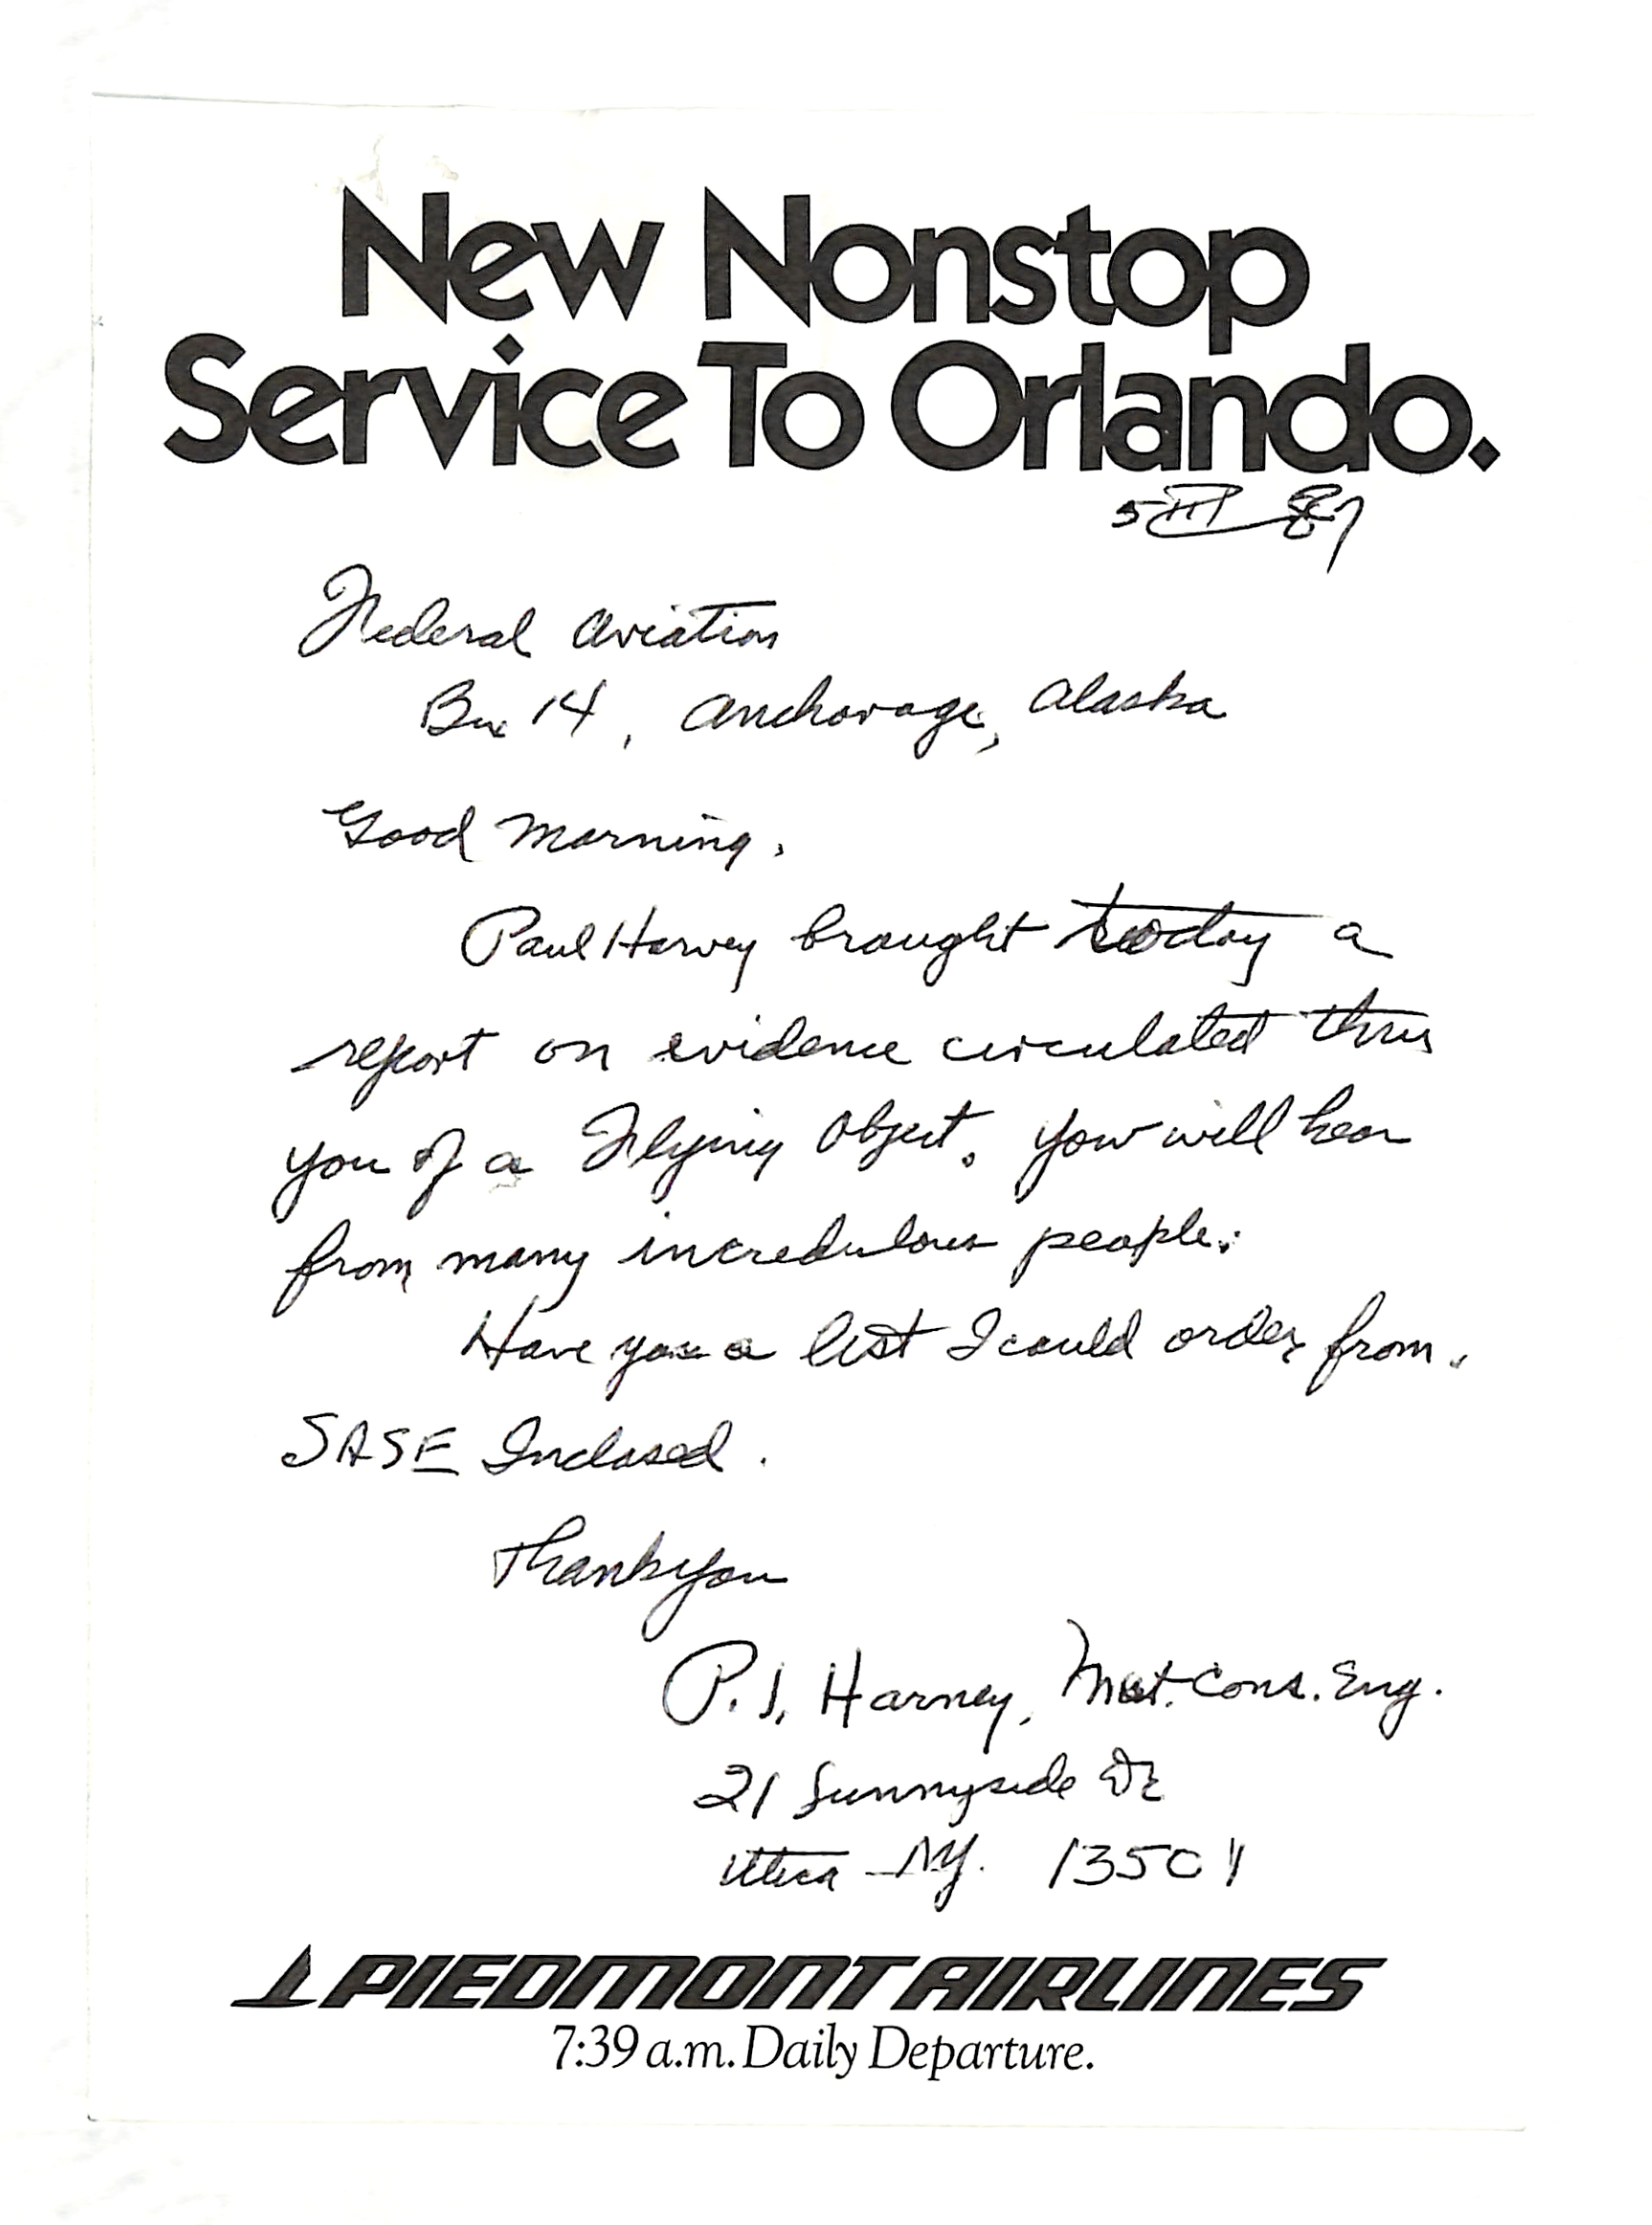 New Nonstop
Service To Orlando.
5 III 87
Federal Aviation
Box 14, Anchorage, Alaska
Good Morning,
Paul Harvey brought today a
report on evidence circulated thru
you of a Flying Object. You will hear
from many incredulous people.
Have you a list I could order from.
SASE Inclosed.
Thank you
P. J. Harney, Mat. Cons. Eng.
21 Sunnyside Dr
Utica NY. 13501
PIEDMONT AIRLINES
7:39 a.m. Daily Departure.